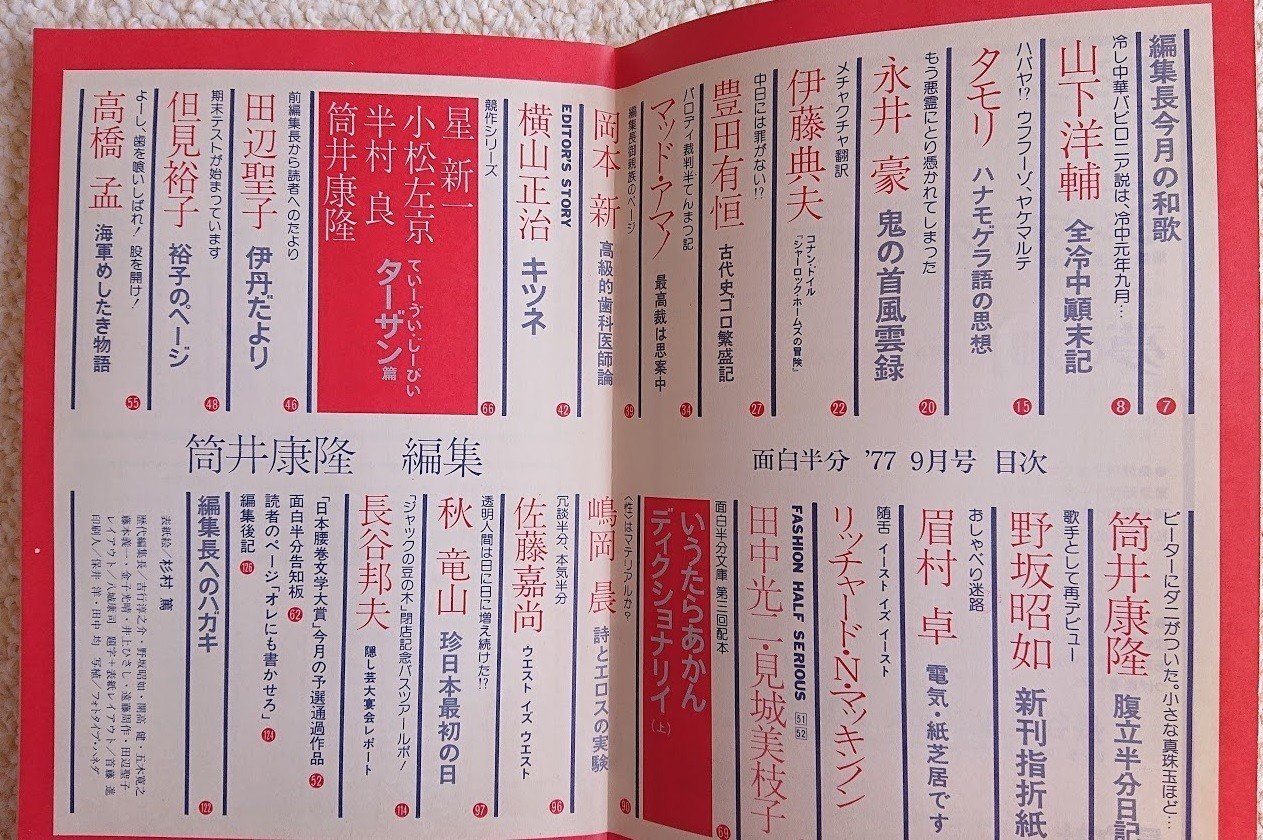 編集長今月の和歌
7
冷し中華バビロニア説は、冷中元年九月…
山下洋輔 全冷中顚末記
8
ハバヤ!? ウフフーゾ、ヤケマルテ
タモリ ハナモゲラ語の思想
15
もう悪霊にとり憑かれてしまった
永井 豪 鬼の首風雲録
20
メチャクチャ翻訳
伊藤典夫 コナン・ドイル
「シャーロック・ホームズの冒険」
22
中日には罪がない!?
豊田有恒 古代史ゴロ繁盛記
27
パロディ裁判半てんまつ記
マッド・アマノ 最高裁は思案中
34
編集長御親族のページ
岡本 新 高級的歯科医師論
39
EDITOR'S STORY
横山正治 キツネ
42
競作シリーズ
星 新一
小松左京
半村 良
筒井康隆
てぃーうぃ・じーぴい
ターザン篇
66
前編集長から読者へのたより
田辺聖子 伊丹だより
46
期末テストが始まっています
但見裕子 裕子のページ
48
よーし、歯を喰いしばれ! 股を開け!
高橋 孟 海軍めしたき物語
55
面白半分 '77 9月号 目次
筒井康隆 編集
ピーターにダニがついた。小さな真珠玉ほど…
筒井康隆 腹立半分日記
歌手として再デビュー
野坂昭如 新刊指折紙
おしゃべり迷路
眉村 卓 電気・紙芝居です
随舌 イースト イズ イースト
リッチャード・N・マッキノン
FASHION HALF SERIOUS 51 52
田中光二・見城美枝子
69
面白半分文庫 第三回配本
いうたらあかん
ディクショナリイ(上)
90
〈性〉はマテリアルか?
嶋岡 晨 詩とエロスの実験
冗談半分、本気半分
佐藤嘉尚 ウエスト イズ ウエスト
96
透明人間は日に日に増え続けた!?
秋 竜山 珍日本最初の日
97
「ジャックの豆の木」閉店記念バスツアールポ
長谷邦夫 隠し芸大宴会レポート
114
「日本腰巻文学大賞」今月の予選通過作品
52
面白半分告知板
62
読者のページ「オレにも書かせろ」
124
編集後記
126
編集長へのハガキ
127
表紙絵/杉村 篤
歴代編集長/吉行淳之介・野坂昭如・開高 健・五木寛之
藤本義一・金子光晴・井上ひさし・遠藤周作・田辺聖子
レイアウト/八城康司 題字+表紙レイアウト/首藤 進
印刷人/保井 洋・田中 均 写植/フォトタイプ・ハネダ